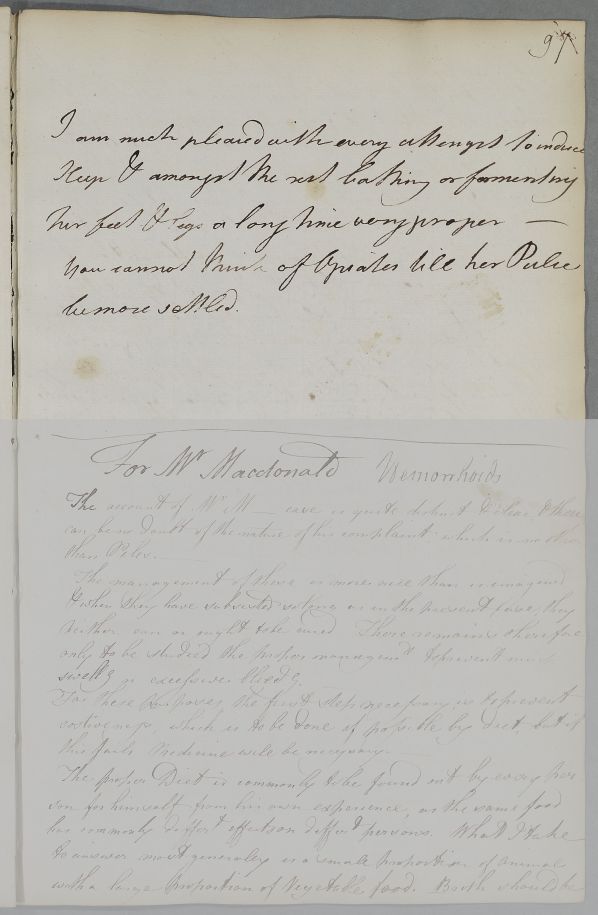 97
I am much pleased with every attempt to induce
Sleep & amongst the rest bathing or fomenting
her feet & legs a long time very proper —
you cannot think of Opiates till her Pulse
be more settled.
For Mr Macdonald Hemorrhoids
The account of Mr M — case is quite distinct & clear & there
can be no doubt of the nature of his complaint which is no other
than Piles. —
The management of these is more nice than is imagined
& when they have subsisted so long as in the present case, they
neither can or ought to be cured There remains therefore
only to be studied the proper managemt to prevent much
swellg or excessive bleedg.
For these purposes the first step necessary is to prevent
costiveness, which is to be done if possible by diet, but if
this fails Medicine will be necessary. —
The proper Diet is commonly to be found out by every per
son for himself from his own experience, as the same food
has commonly differt effects on differt persons. What I take
to answer most generally is a small proportion of animal
with a large proportion of Vegetable food. Broth should be